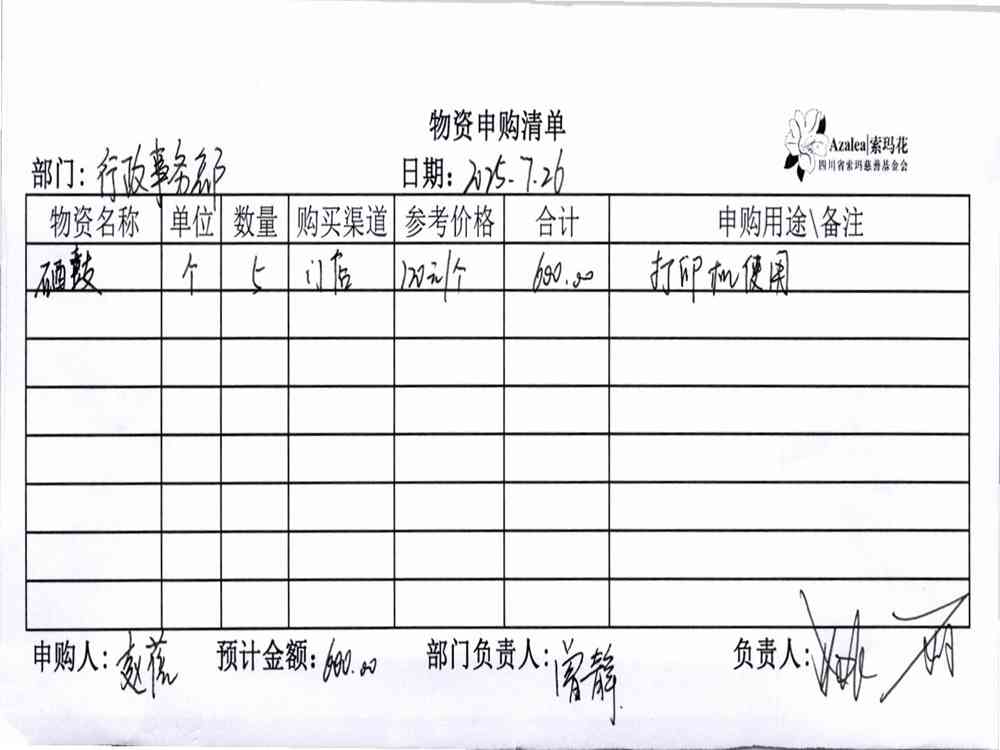 物资申购清单
Azalea|索玛花
四川省索玛慈善基金会
部门：行政事务部 日期：2025.7.26
物资名称 单位 数量 购买渠道 参考价格 合计 申购用途\备注
硒鼓 个 5 门店 120元/个 600.00 打印机使用
申购人：赵 预计金额：600.00 部门负责人：曾静 负责人：